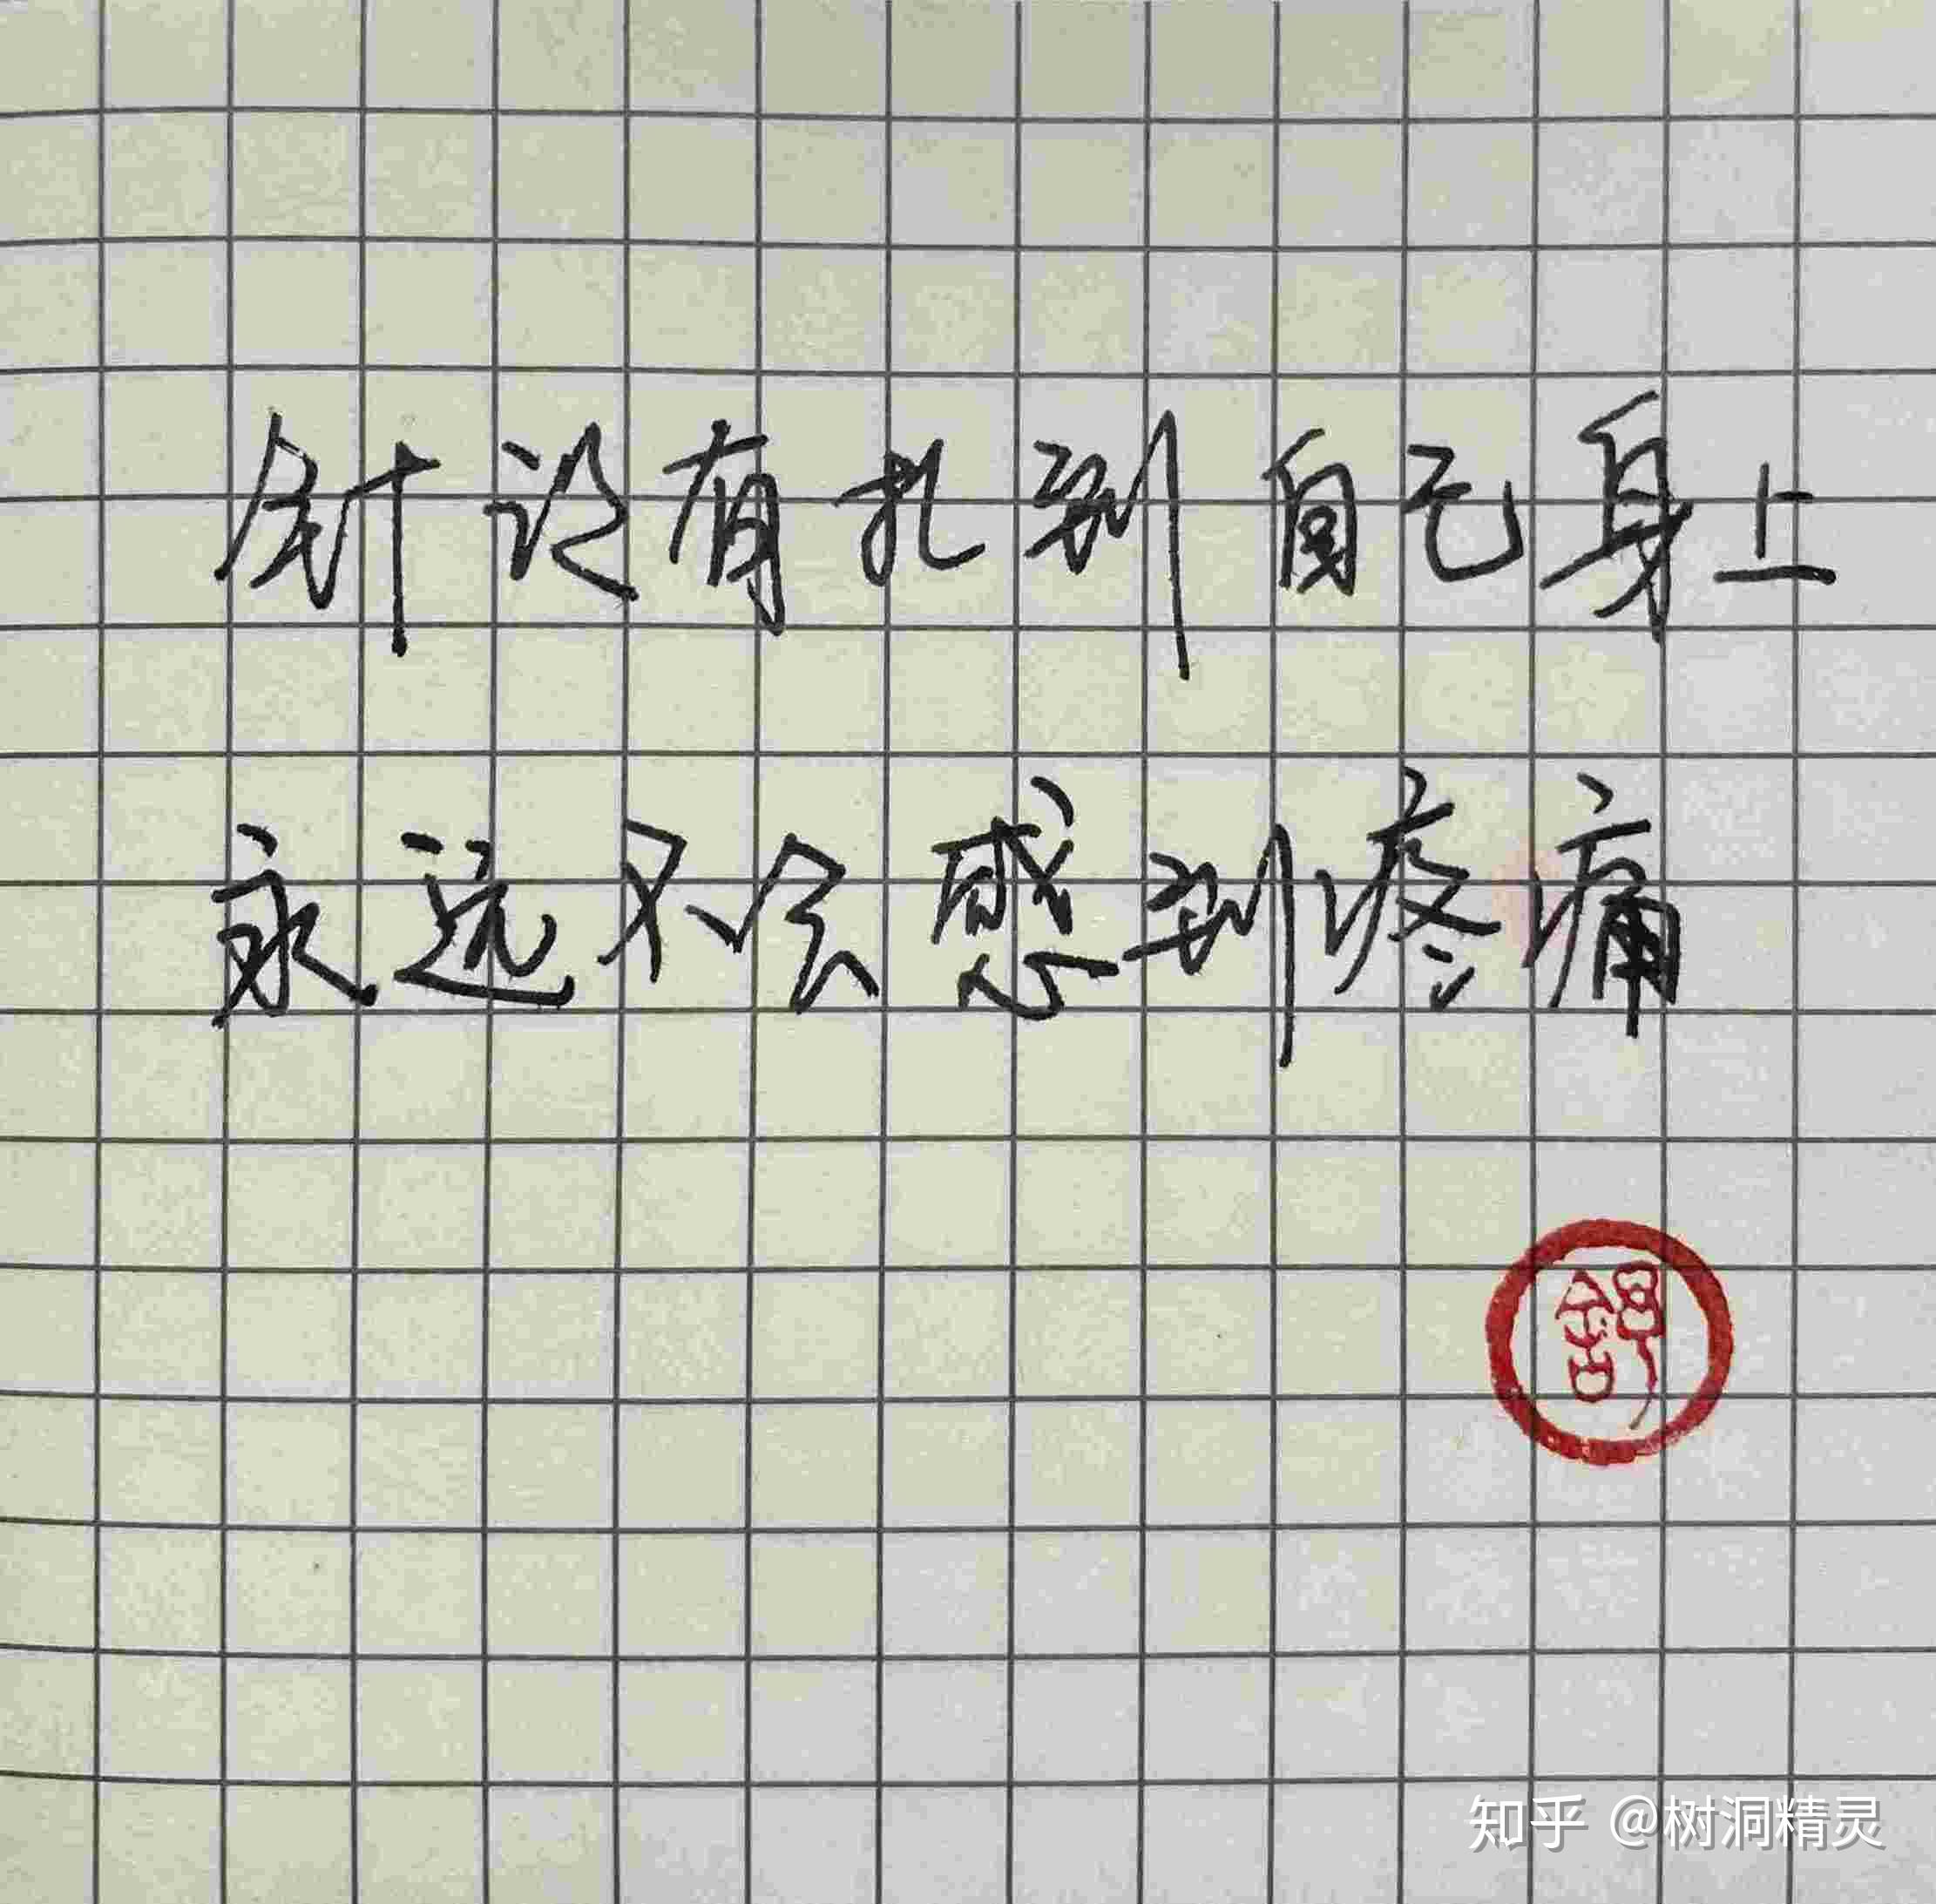 针没有扎到自己身上
永远不会感到疼痛
舒
知乎 @树洞精灵